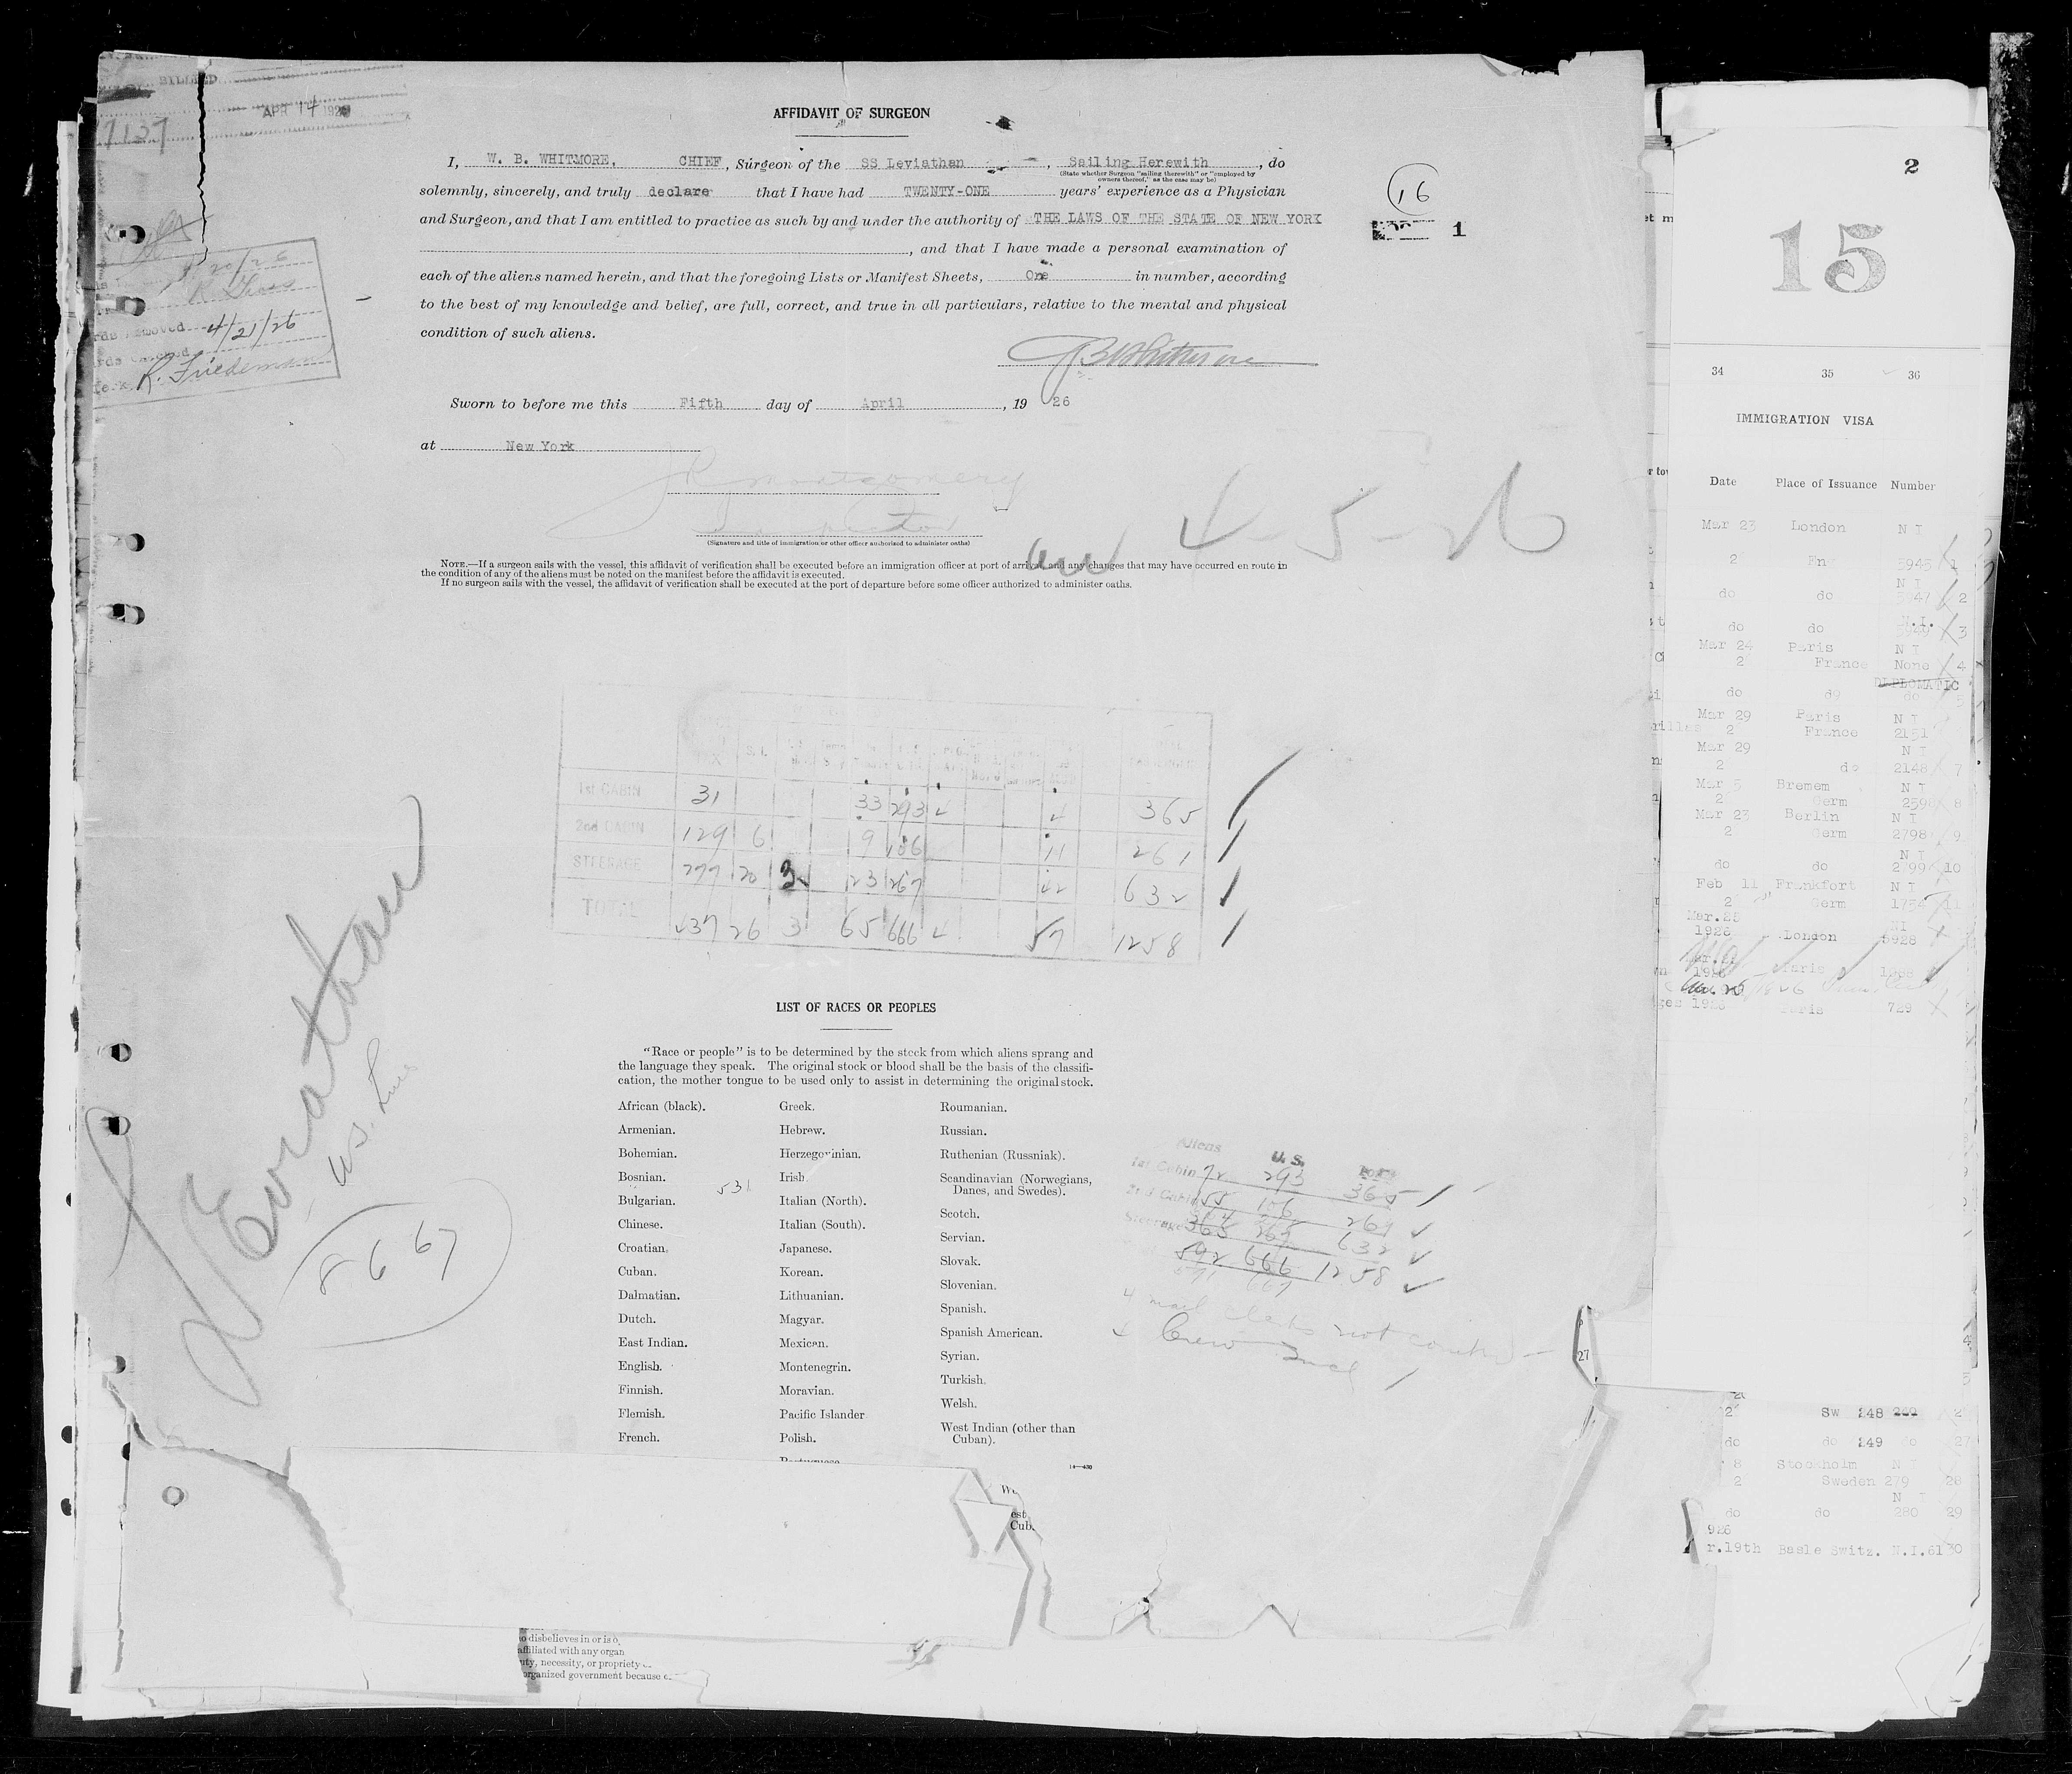 BILLED
APR 14 192
17137
4/20/26
rds Removed 4/21/26
rds Checked
R. Friedeman
AFFIDAVIT OF SURGEON
I, W. B. WHITMORE, CHIEF, Surgeon of the SS Leviathan, Sailing Herewith, do
(State whether Surgeon "sailing therewith" or "employed by
owners thereof," as the case may be)
solemnly, sincerely, and truly declare that I have had TWENTY-ONE years' experience as a Physician
and Surgeon, and that I am entitled to practice as such by and under the authority of THE LAWS OF THE STATE OF NEW YORK
, and that I have made a personal examination of
each of the aliens named herein, and that the foregoing Lists or Manifest Sheets, One in number, according
to the best of my knowledge and belief, are full, correct, and true in all particulars, relative to the mental and physical
condition of such aliens.
16
1
WBWhitmore
Sworn to before me this Fifth day of April, 19 26
at New York
JR Montgomery
Inspector
(Signature and title of immigration or other officer authorized to administer oaths)
4-5-26
NOTE.—If a surgeon sails with the vessel, this affidavit of verification shall be executed before an immigration officer at port of arrival, and any changes that may have occurred en route in
the condition of any of the aliens must be noted on the manifest before the affidavit is executed.
If no surgeon sails with the vessel, the affidavit of verification shall be executed at the port of departure before some officer authorized to administer oaths.
TAX S. I.
1st CABIN 31 33 293 4 4 365
2nd CABIN 129 6 9 106 11 261
STEERAGE 277 20 3 23 267 42 632
TOTAL 437 26 3 65 666 4 57 1258
Leviathan
U.S. Lines
8667
LIST OF RACES OR PEOPLES
"Race or people" is to be determined by the stock from which aliens sprang and
the language they speak. The original stock or blood shall be the basis of the classifi-
cation, the mother tongue to be used only to assist in determining the original stock.
African (black).
Armenian.
Bohemian.
Bosnian.
Bulgarian.
Chinese.
Croatian.
Cuban.
Dalmatian.
Dutch.
East Indian.
English.
Finnish.
Flemish.
French.
531
Greek.
Hebrew.
Herzegovinian.
Irish.
Italian (North).
Italian (South).
Japanese.
Korean.
Lithuanian.
Magyar.
Mexican.
Montenegrin.
Moravian.
Pacific Islander
Polish.
Portuguese
Roumanian.
Russian.
Ruthenian (Russniak).
Scandinavian (Norwegians,
Danes, and Swedes).
Scotch.
Servian.
Slovak.
Slovenian.
Spanish.
Spanish American.
Syrian.
Turkish.
Welsh.
West Indian (other than
Cuban).
14—430
Aliens U. S. Total
1st Cabin 72 293 365
2nd Cabin 155 106 261
Steerage 365 267 632
592 666 1258
591 667
4 mail clerks not counted
4 Crew Incl
est
Cub.
o disbelieves in or is o
affiliated with any organ
uty, necessity, or propriety
organized government because o
2
15
34 35 36
IMMIGRATION VISA
Date Place of Issuance Number
Mar 23 London N I
2 Eng 5945 1
N I
do do 5947 2
N.I.
do do 5949 3
Mar 24 Paris N I
2 France None 4
DIPLOMATIC
do do do 5
Mar 29 Paris N I
2 France 2151
Mar 29 N I
2 do 2148 7
Mar 5 Bremem N I
2 Germ 2598 8
Mar 23 Berlin N I
2 Germ 2798 9
N I
do do 2799 10
Feb 11 Frankfort N I
2 Germ 1754 11
Mar.25 NI
1926 London 5928
Mar.
1926 Paris 1088
1926 Paris 729
27
Sw 248
do do 249 27
8 Stockholm N I
2 Sweden 279 28
N I
do do 280 29
926
r.19th Basle Switz. N.I.61 30